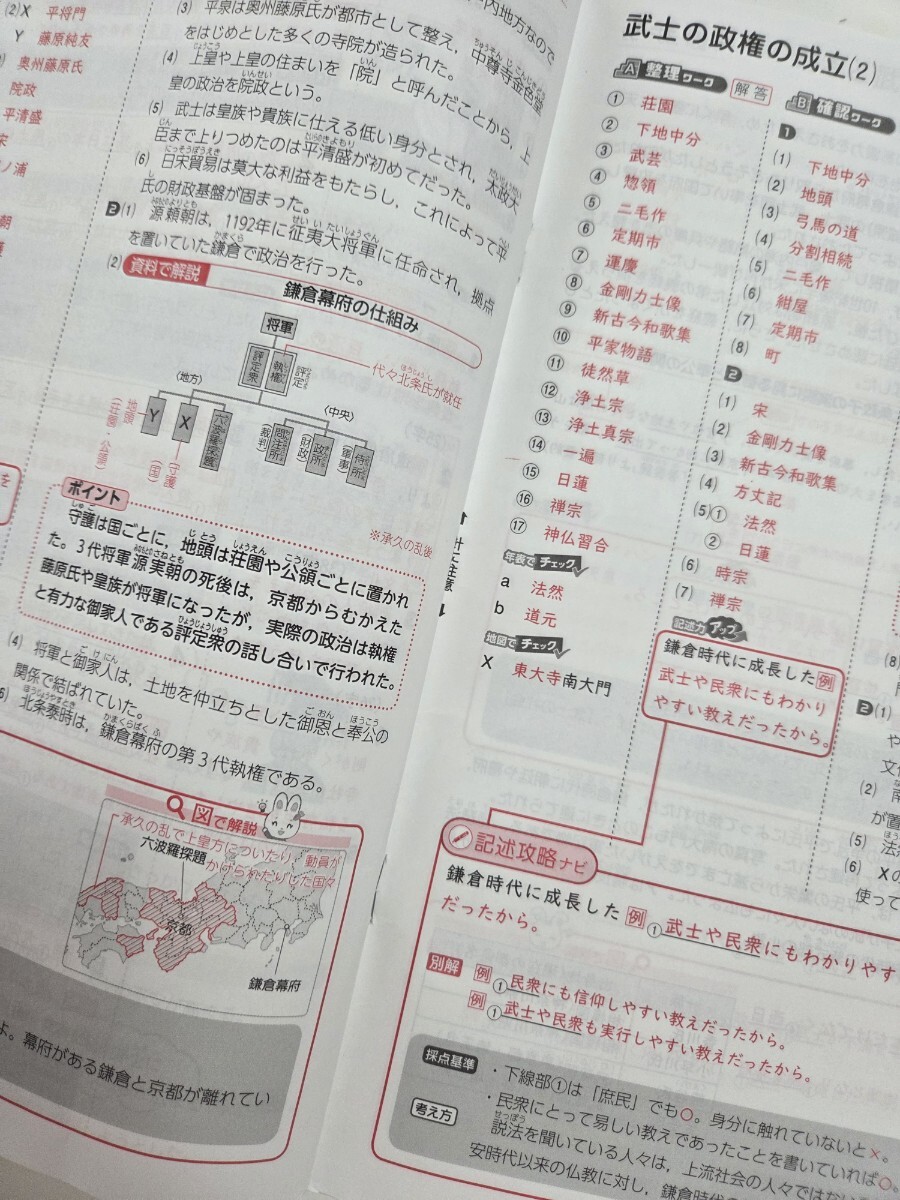 (2)X 平将門
Y 藤原純友
奥州藤原氏
院政
平清盛
宋
ノ浦
(3) 平泉は奥州藤原氏が都市として整え，中尊寺金色堂
をはじめとした多くの寺院が造られた。
(4) 上皇や上皇の住まいを「院」と呼んだことから，上
皇の政治を院政という。
(5) 武士は皇族や貴族に仕える低い身分とされ，太政大
臣まで上りつめたのは平清盛が初めてだった。
(6) 日宋貿易は莫大な利益をもたらし，これによって平
氏の財政基盤が固まった。
2(1) 源頼朝は，1192年に征夷大将軍に任命され，拠点
を置いていた鎌倉で政治を行った。
(2) 資料で解説
鎌倉幕府の仕組み
将軍
評定衆
執権
評定
代々北条氏が就任
〈地方〉
〈中央〉
地頭
(荘園・公領)
Y
X
守護
(国)
六波羅探題
問注所
(裁判)
政所
(財政)
侍所
(軍事)
※承久の乱後
ポイント
守護は国ごとに，地頭は荘園や公領ごとに置かれ
た。3代将軍源実朝の死後は，京都からむかえた
藤原氏や皇族が将軍になったが，実際の政治は執権
と有力な御家人である評定衆の話し合いで行われた。
(4) 将軍と御家人は，土地を仲立ちとした御恩と奉公の
関係で結ばれていた。
北条泰時は，鎌倉幕府の第3代執権である。
図で解説
承久の乱で上皇方についたり，動員が
かけられたりした国々
六波羅探題
京都
鎌倉幕府
よ。幕府がある鎌倉と京都が離れてい
武士の政権の成立(2)
A 整理ワーク 解答
① 荘園
② 下地中分
③ 武芸
④ 惣領
⑤ 二毛作
⑥ 定期市
⑦ 運慶
⑧ 金剛力士像
⑨ 新古今和歌集
⑩ 平家物語
⑪ 徒然草
⑫ 浄土宗
⑬ 浄土真宗
⑭ 一遍
⑮ 日蓮
⑯ 禅宗
⑰ 神仏習合
年表でチェック
a 法然
b 道元
地図でチェック
X 東大寺南大門
B 確認ワーク
1
(1) 下地中分
(2) 地頭
(3) 弓馬の道
(4) 分割相続
(5) 二毛作
(6) 紺屋
(7) 定期市
(8) 町
2
(1) 宋
(2) 金剛力士像
(3) 新古今和歌集
(4) 方丈記
(5)① 法然
② 日蓮
(6) 時宗
(7) 禅宗
記述力アップ
鎌倉時代に成長した 例
武士や民衆にもわかり
やすい教えだったから。
記述攻略ナビ
鎌倉時代に成長した 例 ①武士や民衆にもわかりやす
だったから。
別解 例 ①民衆にも信仰しやすい教えだったから。
例 ①武士や民衆も実行しやすい教えだったから。
採点基準 ・下線部①は「庶民」でも○。身分に触れていないと×。
・民衆にとって易しい教えであったことを書いていれば○。
考え方 説法を聞いている人々は，上流社会の人々では
安時代以来の仏教に対し，鎌倉時代
(8)
2(1)
や
文
(2) 南
が置
(5) 法
(6) Xの
使って